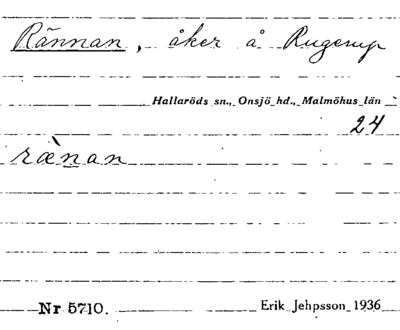 Rännan, åker å Rugerup
Hallaröds sn., Onsjö hd., Malmöhus län
24
ræ̀nan
Nr 5710. Erik Jehpsson 1936